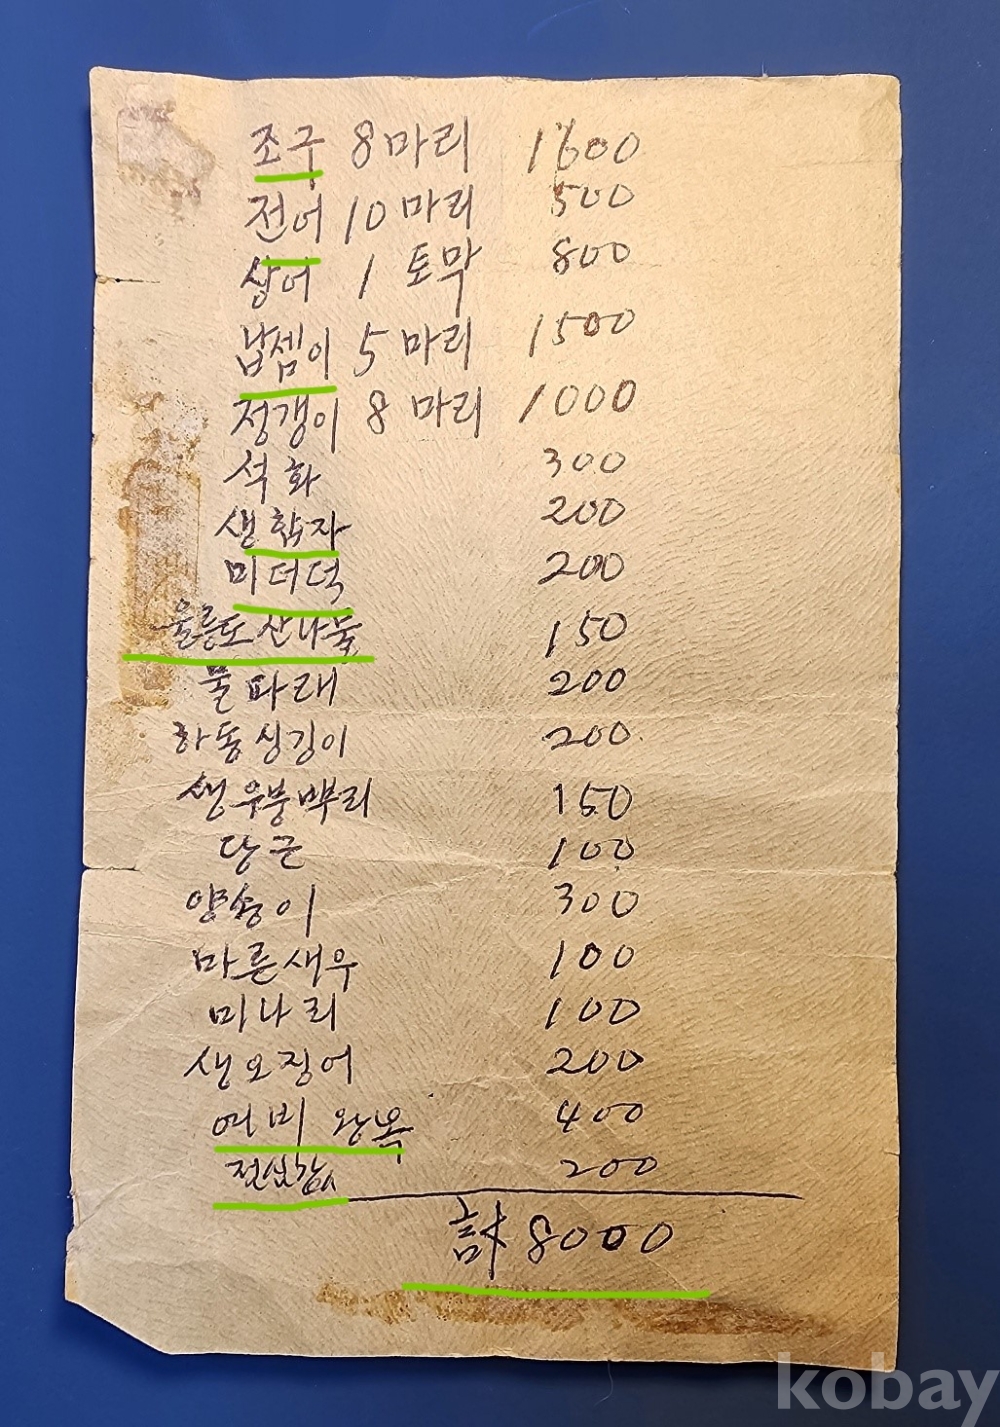 조구 8마리 1600
전어 10마리 500
상어 1 토막 800
납셈이 5마리 1500
정갱이 8마리 1000
석화 300
생합자 200
미더덕 200
울릉도 산나물 150
물파래 200
하동싱깅이 200
생우붕뿌리 150
당근 100
양송이 300
마른새우 100
미나리 100
생오징어 200
여비 왕복 400
점심값 200
計 8000
kobay